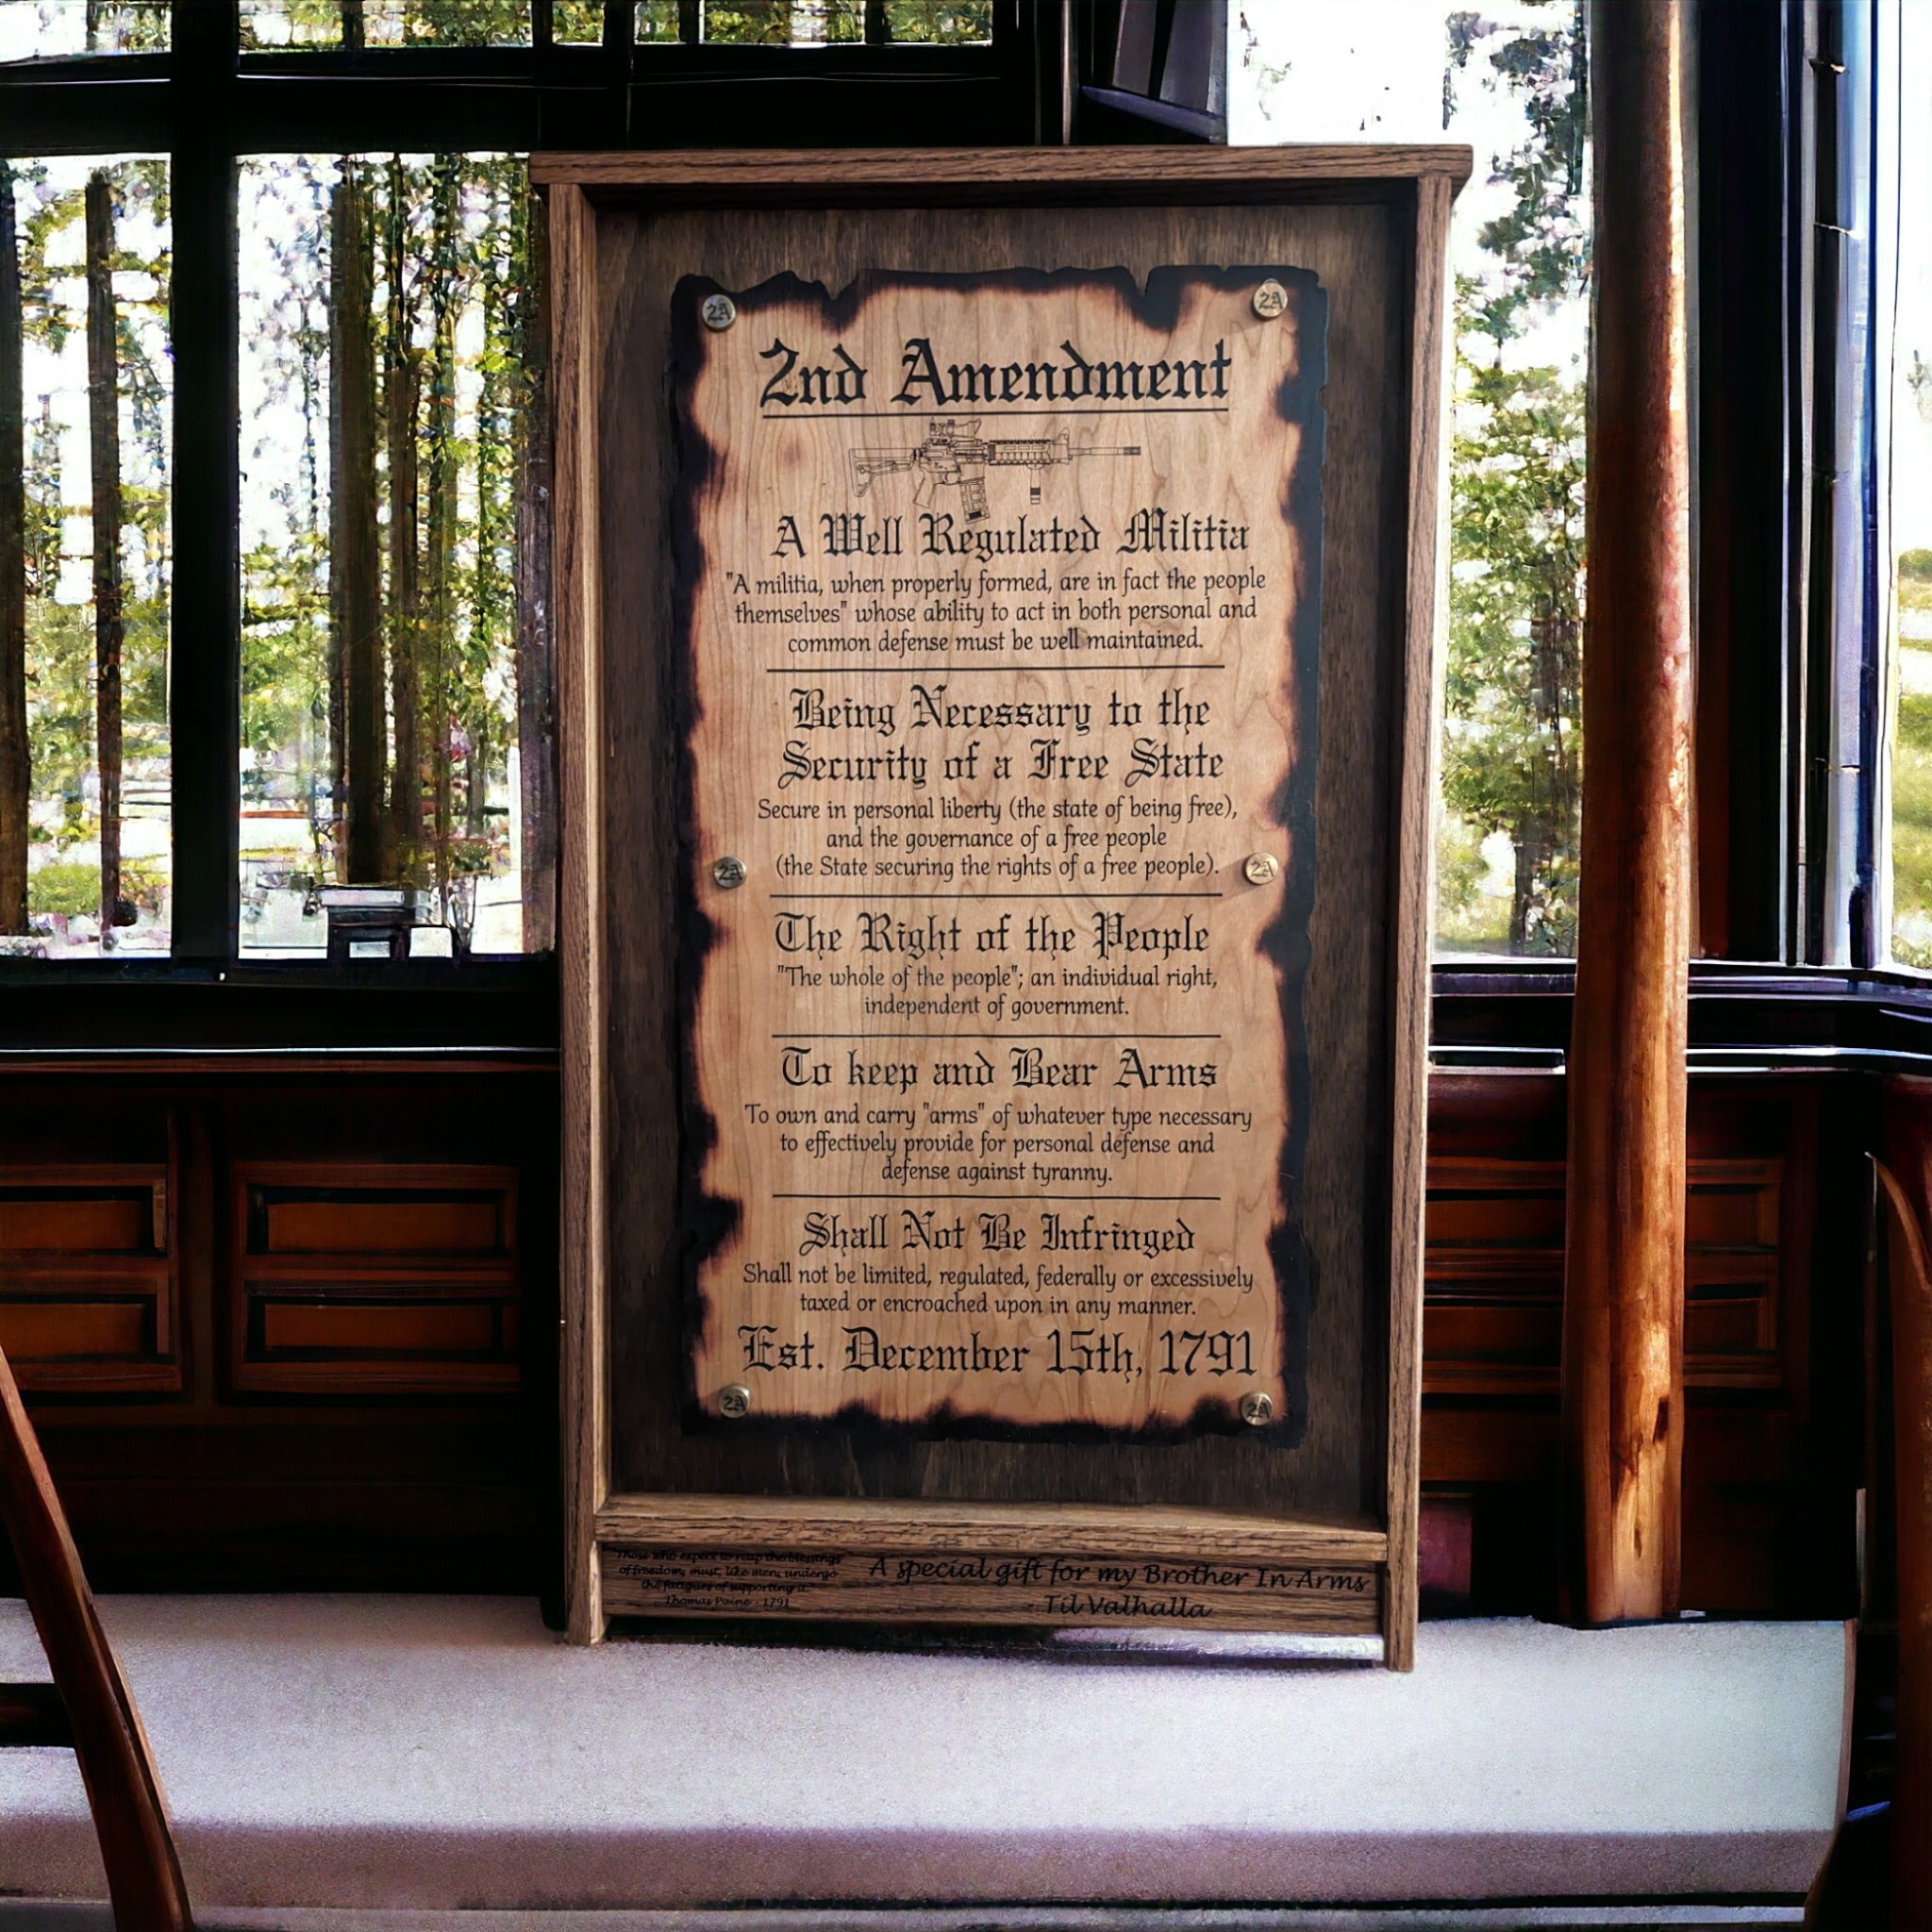 2A 2A
2nd Amendment
A Well Regulated Militia
"A militia, when properly formed, are in fact the people
themselves" whose ability to act in both personal and
common defense must be well maintained.
Being Necessary to the
Security of a Free State
Secure in personal liberty (the state of being free),
and the governance of a free people
(the State securing the rights of a free people).
2A 2A
The Right of the People
"The whole of the people"; an individual right,
independent of government.
To keep and Bear Arms
To own and carry "arms" of whatever type necessary
to effectively provide for personal defense and
defense against tyranny.
Shall Not Be Infringed
Shall not be limited, regulated, federally or excessively
taxed or encroached upon in any manner.
Est. December 15th, 1791
2A 2A
"Those who expect to reap the blessings
of freedom, must, like men, undergo
the fatigues of supporting it."
Thomas Paine - 1791
A special gift for my Brother In Arms
- Til Valhalla